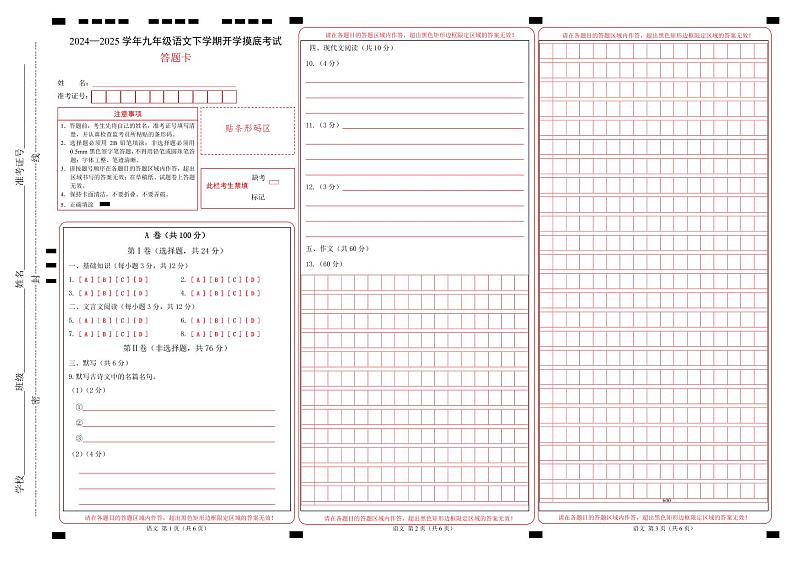 准考证号
姓名
班级
学校
线
封
密
2024—2025 学年九年级语文下学期开学摸底考试
答题卡
姓 名:
准考证号:
注意事项
1. 答题前,考生先将自己的姓名,准考证号填写清
楚,并认真检查监考员所粘贴的条形码。
2. 选择题必须用 2B 铅笔填涂;非选择题必须用
0.5mm 黑色签字笔答题,不得用铅笔或圆珠笔答
题;字体工整、笔迹清晰。
3. 请按题号顺序在各题目的答题区域内作答,超出
区域书写的答案无效;在草稿纸、试题卷上答题
无效。
4. 保持卡面清洁,不要折叠、不要弄破。
5. 正确填涂
贴条形码区
此栏考生禁填
缺考
标记
A 卷(共 100 分)
第Ⅰ卷(选择题,共 24 分)
一、基础知识(每小题 3 分,共 12 分)
1. [ A ] [ B ] [ C ] [ D ] 2. [ A ] [ B ] [ C ] [ D ]
3. [ A ] [ B ] [ C ] [ D ] 4. [ A ] [ B ] [ C ] [ D ]
二、文言文阅读(每小题 3 分,共 12 分)
5. [ A ] [ B ] [ C ] [ D ] 6. [ A ] [ B ] [ C ] [ D ]
7. [ A ] [ B ] [ C ] [ D ] 8. [ A ] [ B ] [ C ] [ D ]
第Ⅱ卷(非选择题,共 76 分)
三、默写(共 6 分)
9.默写古诗文中的名篇名句。
(1)(2 分)
①
②
③
(2)(4 分)
请在各题目的答题区域内作答,超出黑色矩形边框限定区域的答案无效!
语文 第 1 页(共 6 页)
请在各题目的答题区域内作答,超出黑色矩形边框限定区域的答案无效!
四、现代文阅读(共 10 分)
10.(4 分)
11.(3 分)
12.(3 分)
五、作文(共 60 分)
13.(60 分)
请在各题目的答题区域内作答,超出黑色矩形边框限定区域的答案无效!
语文 第 2 页(共 6 页)
请在各题目的答题区域内作答,超出黑色矩形边框限定区域的答案无效!
600
请在各题目的答题区域内作答,超出黑色矩形边框限定区域的答案无效!
语文 第 3 页(共 6 页)